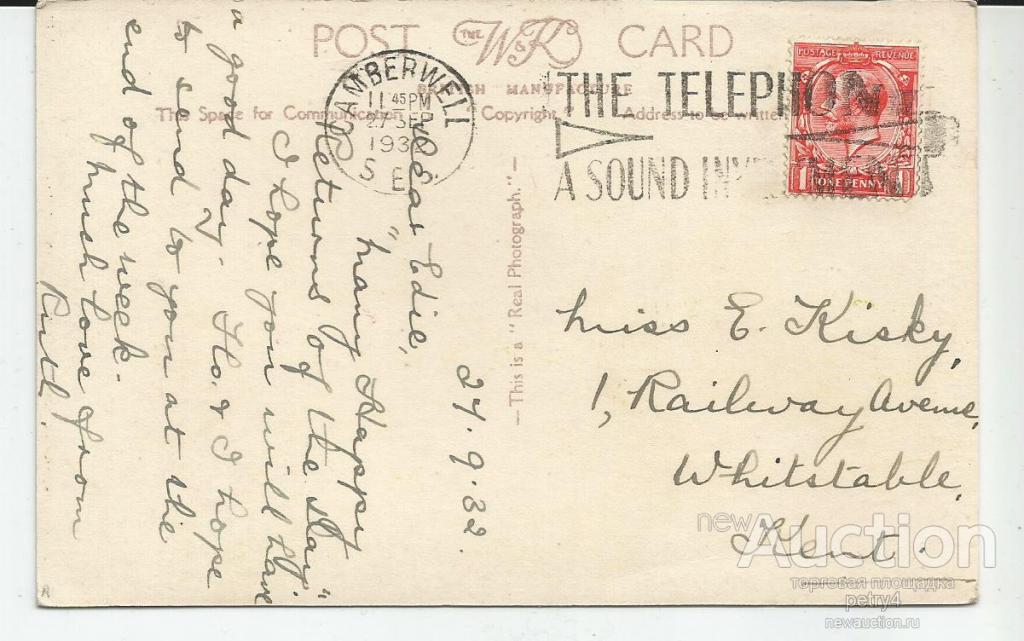 POST THE W&K CARD
BRITISH MANUFACTURE
The Space for Communication "Copyright" Address to be written
CAMBERWELL
11 45 PM
27 SEP
193
S E
THE TELEPHON
A SOUND INV
POSTAGE REVENUE
ONE PENNY
—This is a "Real Photograph."—
24.9.32.
Dear Edie,
"Many Happy
Returns of the day"
I hope you will have
a good day. Flo. & I hope
to send to you at the
end of the week.
Much love from
Ruth.
Miss E. Kisky,
1, Railway Avenue,
Whitstable,
Kent.
newAuction
торговая площадка
petry4
newauction.ru